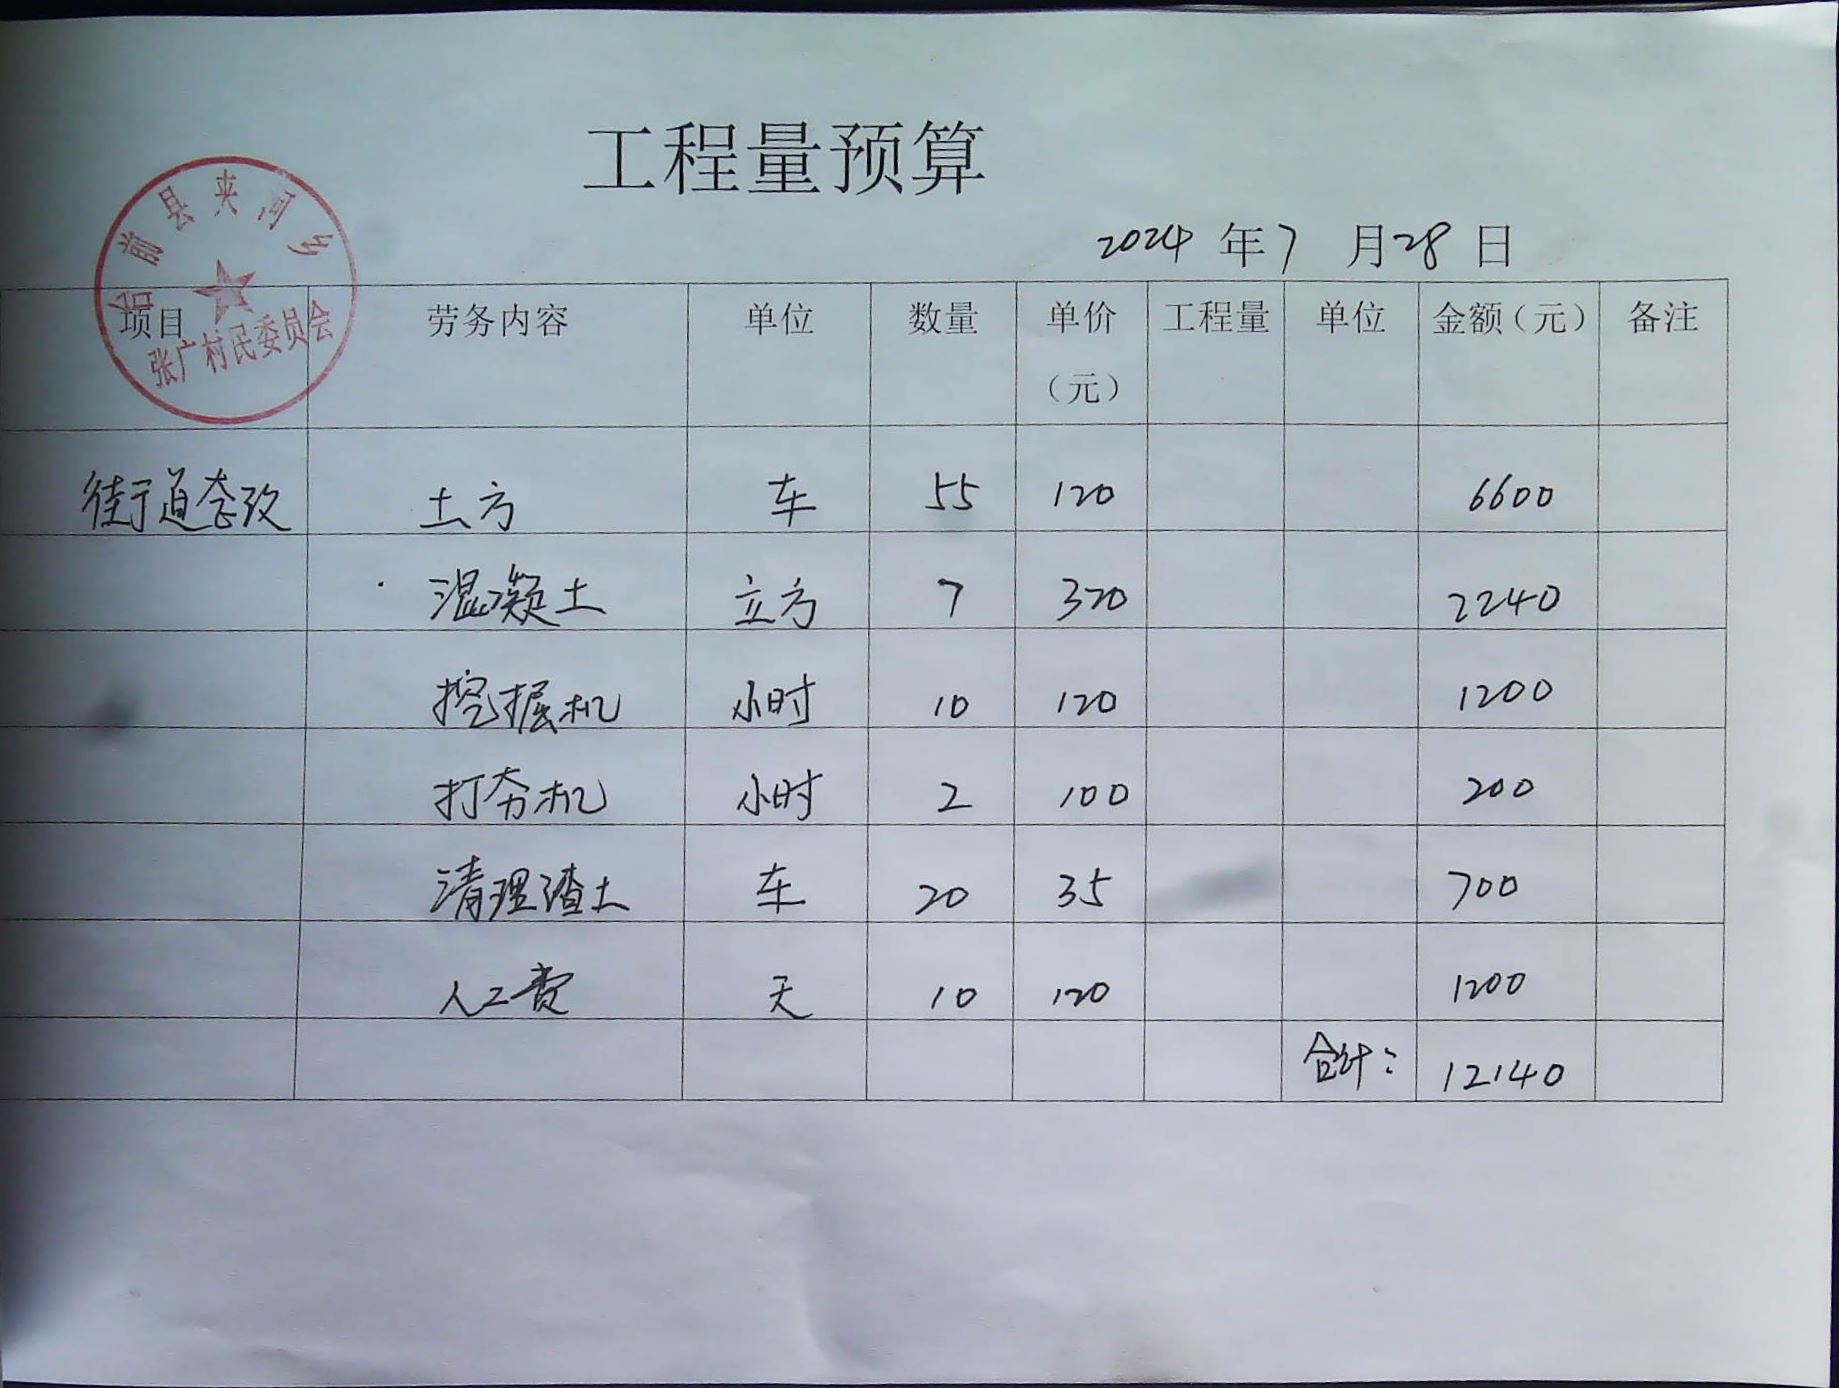 工程量预算
2024 年 7 月 28 日
台前县夹河乡
张广村民委员会
项目 劳务内容 单位 数量 单价（元） 工程量 单位 金额（元） 备注
街道整改 土方 车 55 120 6600
混凝土 立方 7 320 2240
挖掘机 小时 10 120 1200
打夯机 小时 2 100 200
清理渣土 车 20 35 700
人工费 天 10 120 1200
合计： 12140